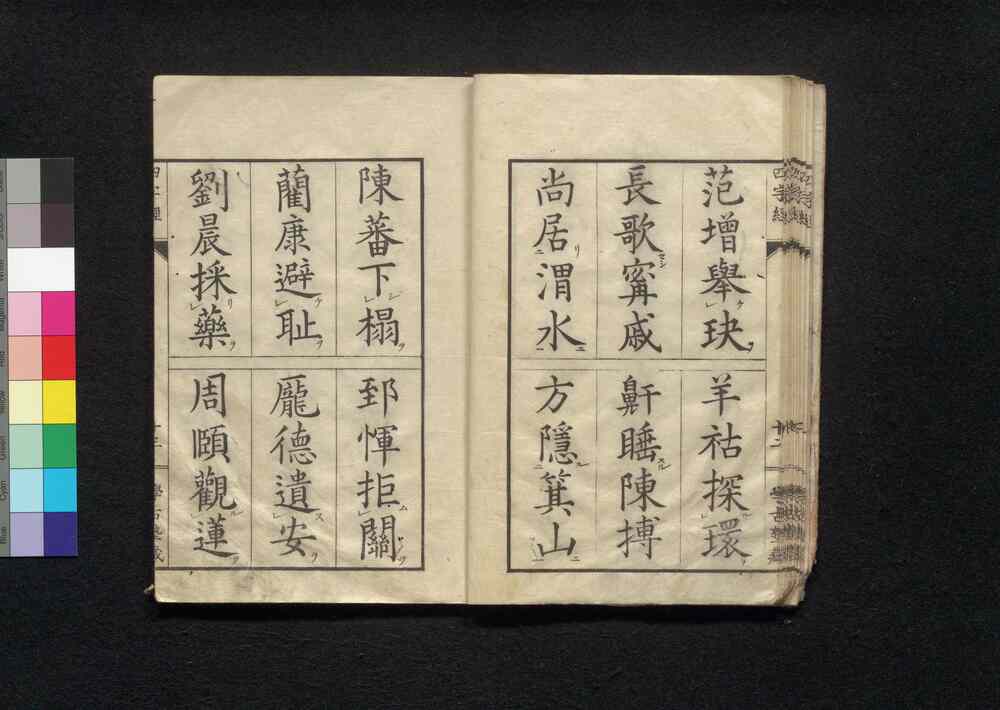 范增舉玦 羊祜探環
長歌寗戚 鼾睡陳摶
尚居渭水 方隱箕山
陳蕃下榻 郅惲拒關
藺康避耻 龐德遺安
劉晨採藥 周頤觀蓮